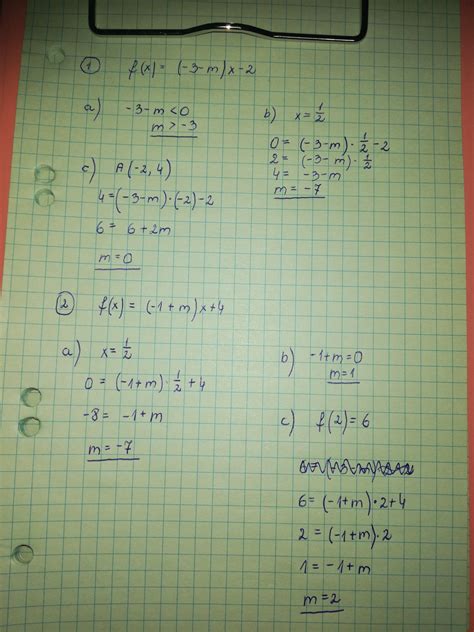 ① f(x) = (-3-m)x-2
a) -3-m<0
m>-3
b) x=1/2
0=(-3-m)·1/2-2
2=(-3-m)·1/2
4= -3-m
m=-7
c) A(-2,4)
4=(-3-m)·(-2)-2
6= 6+2m
m=0
② f(x)=(-1+m)x+4
a) x=1/2
0=(-1+m)·1/2+4
-8= -1+m
m=-7
b) -1+m=0
m=1
c) f(2)=6
6=(-1+m)·2+4
2=(-1+m)·2
1=-1+m
m=2